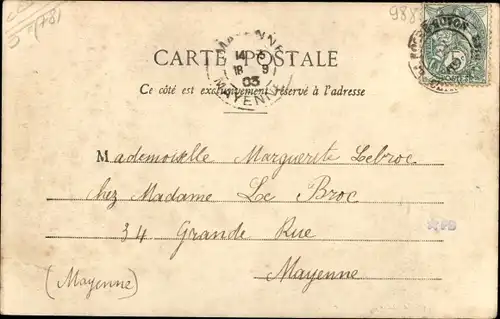 CARTE POSTALE
MAYENNE
14 5
18 9
03
MAYENNE
Ce côté est exclusivement réservé à l'adresse
Mademoiselle Marguerite Lebroc
chez Madame Le Broc
34 Grande Rue
Mayenne
(Mayenne)